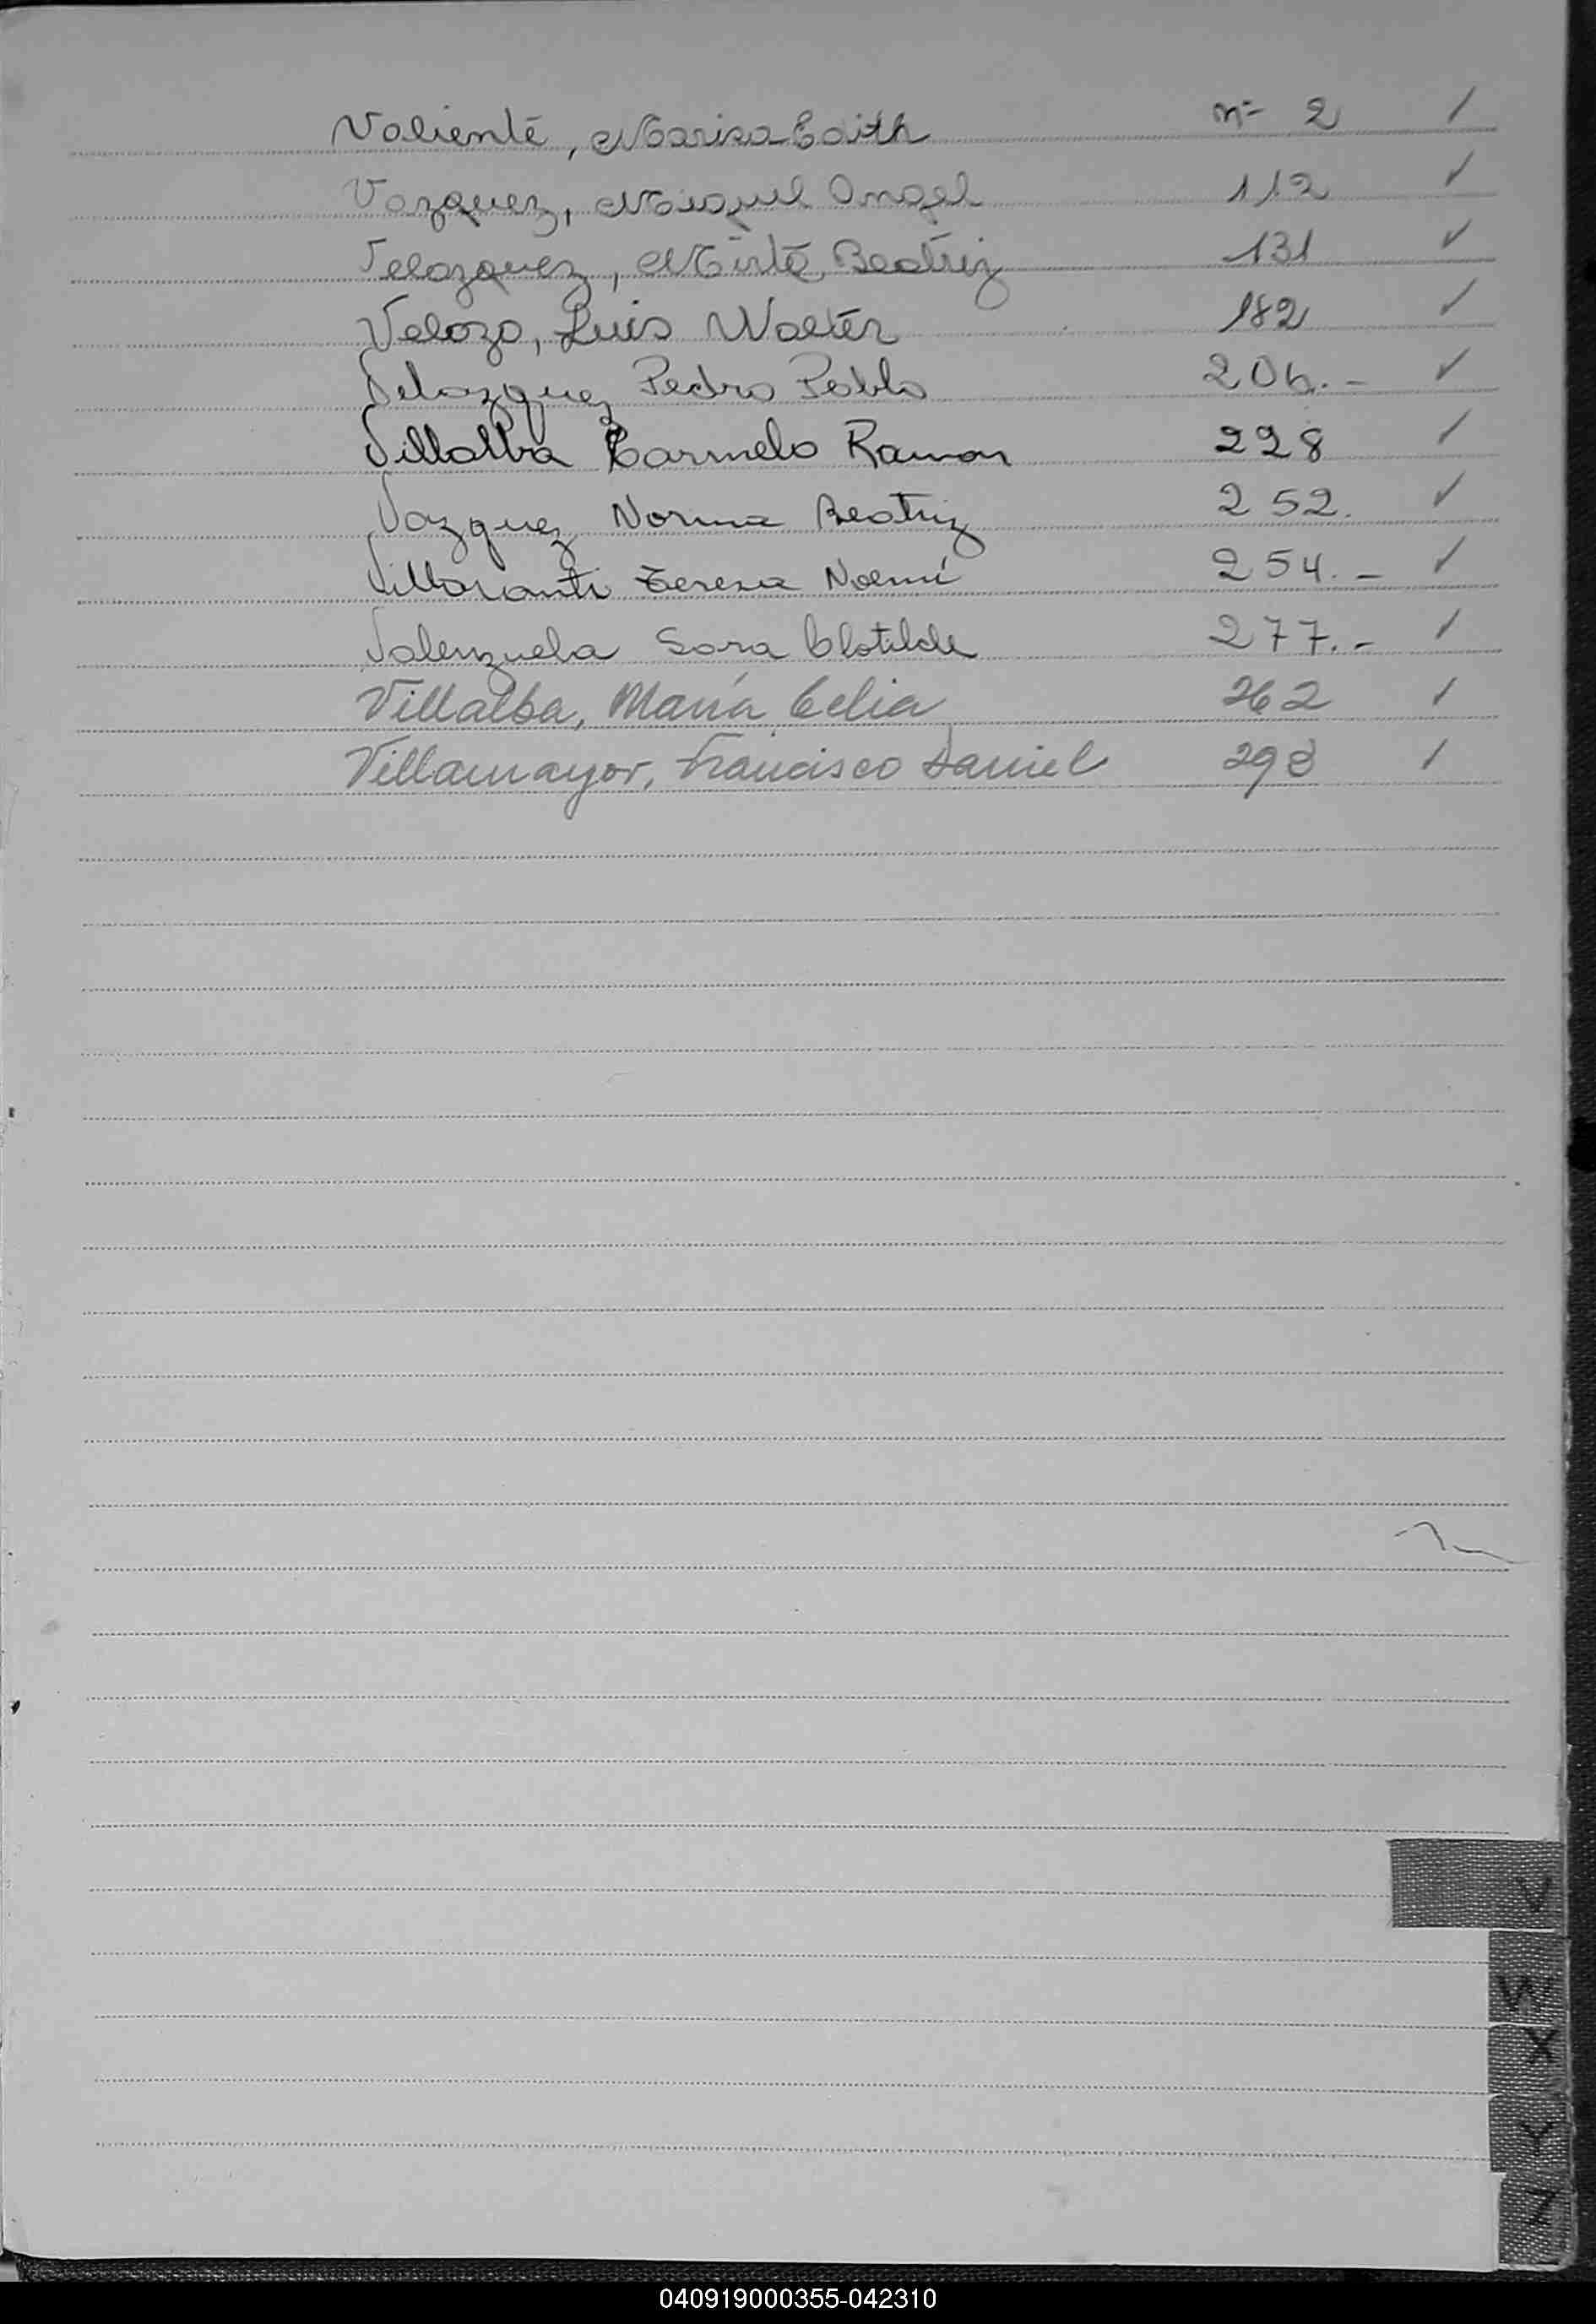 Valiente, Marisa Edith nº 2 /
Vazquez, Miguel Angel 112 ✓
Velazquez, Mirta Beatriz 131 ✓
Velozo, Luis Walter 182 ✓
Velazquez Pedro Pablo 206.- ✓
Villalba Carmelo Ramon 228 /
Vazquez Norma Beatriz 252. ✓
Teresa Noemí 254.- /
Valenzuela Sara Clotilde 277.- /
Villalba, María Celia 262 /
Villamayor, Francisco Daniel 298 /
V
W
X
Y
Z
040919000355-042310